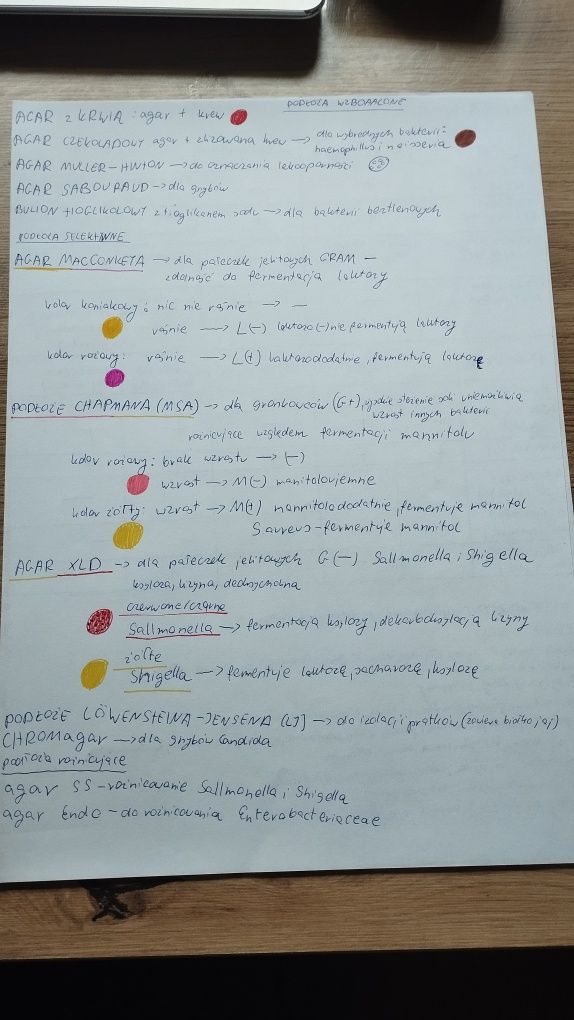 PODŁOŻA WZBOGACONE
AGAR z KRWIĄ : agar + krew
AGAR CZEKOLADOWY agar + zlizowana krew → dla wybrednych bakterii:
haemophillus i neisseria
AGAR MULLER-HINTON → do oznaczania lekooporności
AGAR SABOURAUD → dla grybów
BULION TIOGLIKOLOWY z tioglikanem sodu → dla bakterii beztlenowych
PODŁOŻA SELEKTYWNE
AGAR MACCONKEYA → dla pałeczek jelitowych GRAM -
zdolność do fermentacja laktozy
kolor koniakowy: nic nie rośnie → -
rośnie → L(-) laktozo(-) nie fermentują laktozy
kolor różowy: rośnie → L(+) laktozododatnie, fermentują laktozę
PODŁOŻE CHAPMANA (MSA) → dla gronkowców (G+), wysokie stężenie soli uniemożliwia
wzrost innych bakterii
różnicujące względem fermentacji mannitolu
kolor różowy: brak wzrostu → (-)
wzrost → M(-) manitoloujemne
kolor żółty: wzrost → M(+) mannitolododatnie, fermentuje mannitol
S aureus - fermentuje mannitol
AGAR XLD → dla pałeczek jelitowych G(-) Sallmonella i Shigella
ksyloza, lizyna,
czerwone/czarne
Sallmonella → fermentacja ksylozy, dekarboksylacja lizyny
żółte
Shigella → fermentuje laktozę, sacharozę, ksylozę
PODŁOŻE LÖWENSTEINA-JENSENA (LJ) → do izolacji prątków (zawiera białko jaj)
CHROMagar → dla grybów Candida
podłoża różnicujące
agar SS - różnicowanie Sallmonella i Shigella
agar Endo - do różnicowania Enterobacteriaceae